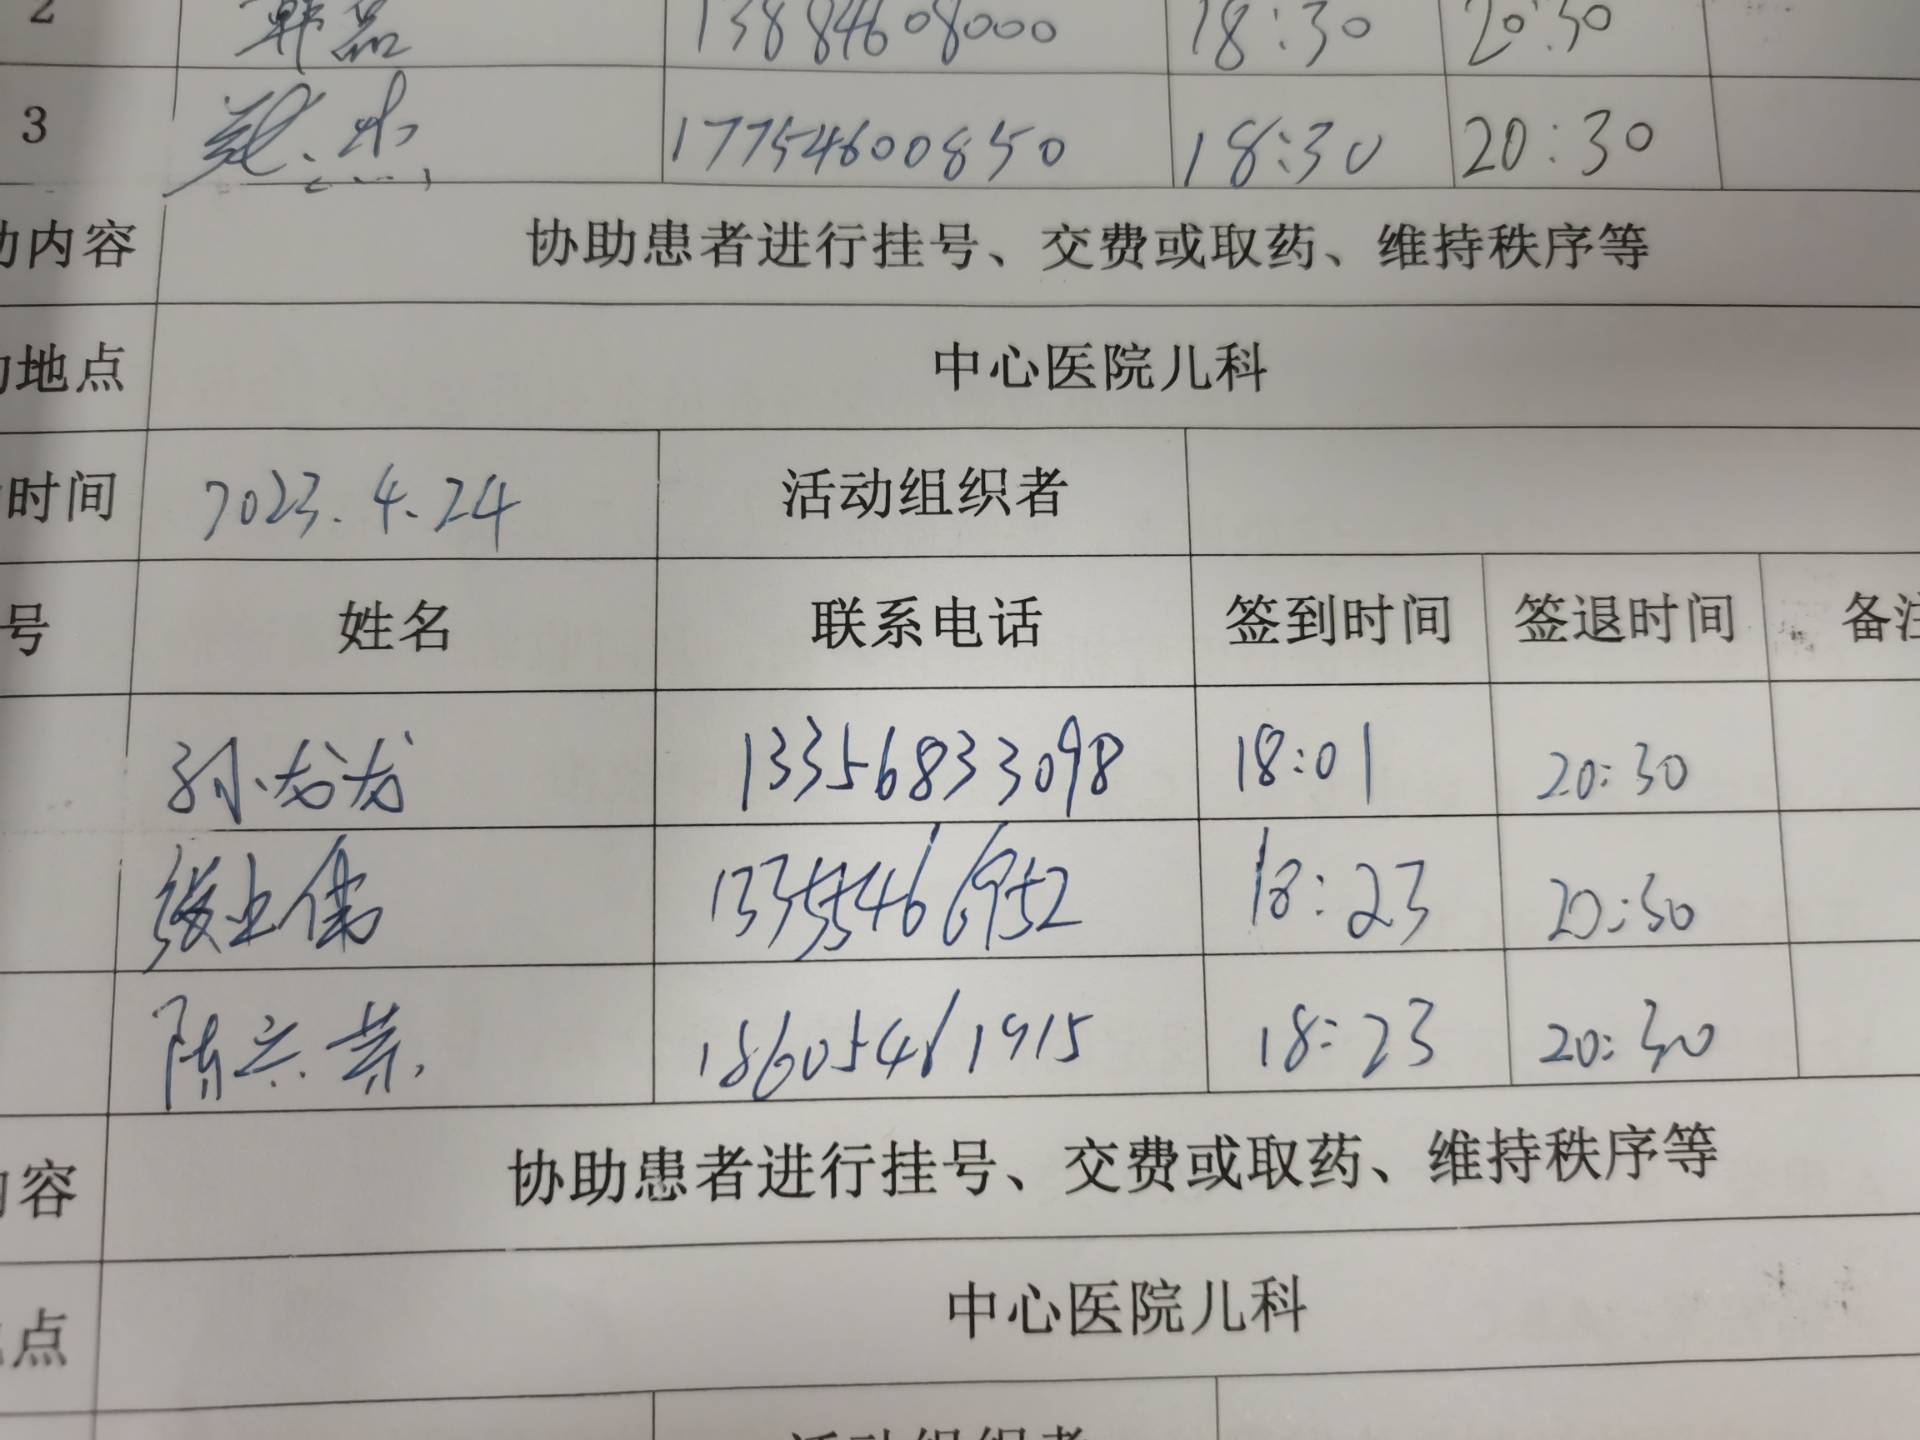 2 韩磊 13884608000 18:30 20:30
3 17754600850 18:30 20:30
动内容 协助患者进行挂号、交费或取药、维持秩序等
动地点 中心医院儿科
时间 2023.4.24 活动组织者
号 姓名 联系电话 签到时间 签退时间 备注
孙龙龙 13356833098 18:01 20:30
13355466952 18:23 20:30
陈兴荣 18605461915 18:23 20:30
内容 协助患者进行挂号、交费或取药、维持秩序等
地点 中心医院儿科
活动组织者